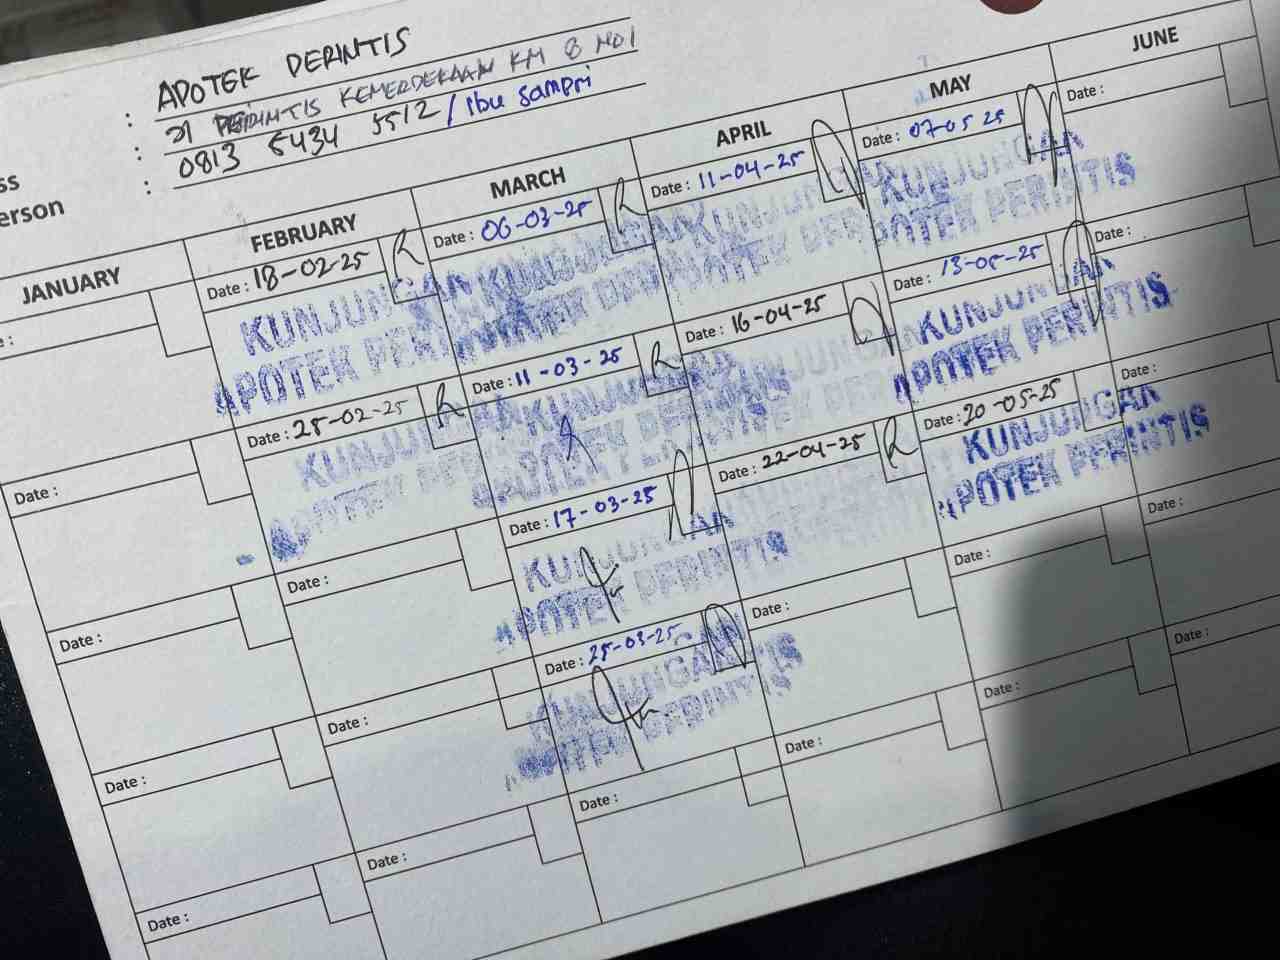 : APOTEK PERINTIS
ss : Jl PERINTIS KEMERDEKAAN KM 8 NO1
erson : 0813 5434 5512 / Ibu Sampri
JANUARY
FEBRUARY
MARCH
APRIL
MAY
JUNE
e :
Date : 18-02-25
Date : 06-03-25
Date : 11-04-25
Date : 07-05 25
Date :
KUNJUNGAN
APOTEK PERINTIS
KUNJUNGAN
APOTEK PERINTIS
KUNJUNGAN
APOTEK PERINTIS
KUNJUNGAN
APOTEK PERINTIS
Date :
Date : 25-02-25
Date : 11-03-25
Date : 16-04-25
Date : 13-05-25
Date :
KUNJUNGAN
APOTEK PERINTIS
KUNJUNGAN
APOTEK PERINTIS
KUNJUNGAN
APOTEK PERINTIS
KUNJUNGAN
APOTEK PERINTIS
Date :
Date :
Date : 17-03-25
Date : 22-04-25
Date : 20-05-25
Date :
KUNJUNGAN
APOTEK PERINTIS
KUNJUNGAN
APOTEK PERINTIS
Date :
Date :
Date : 25-03-25
Date :
Date :
Date :
KUNJUNGAN
APOTEK PERINTIS
Date :
Date :
Date :
Date :
Date :
Date :